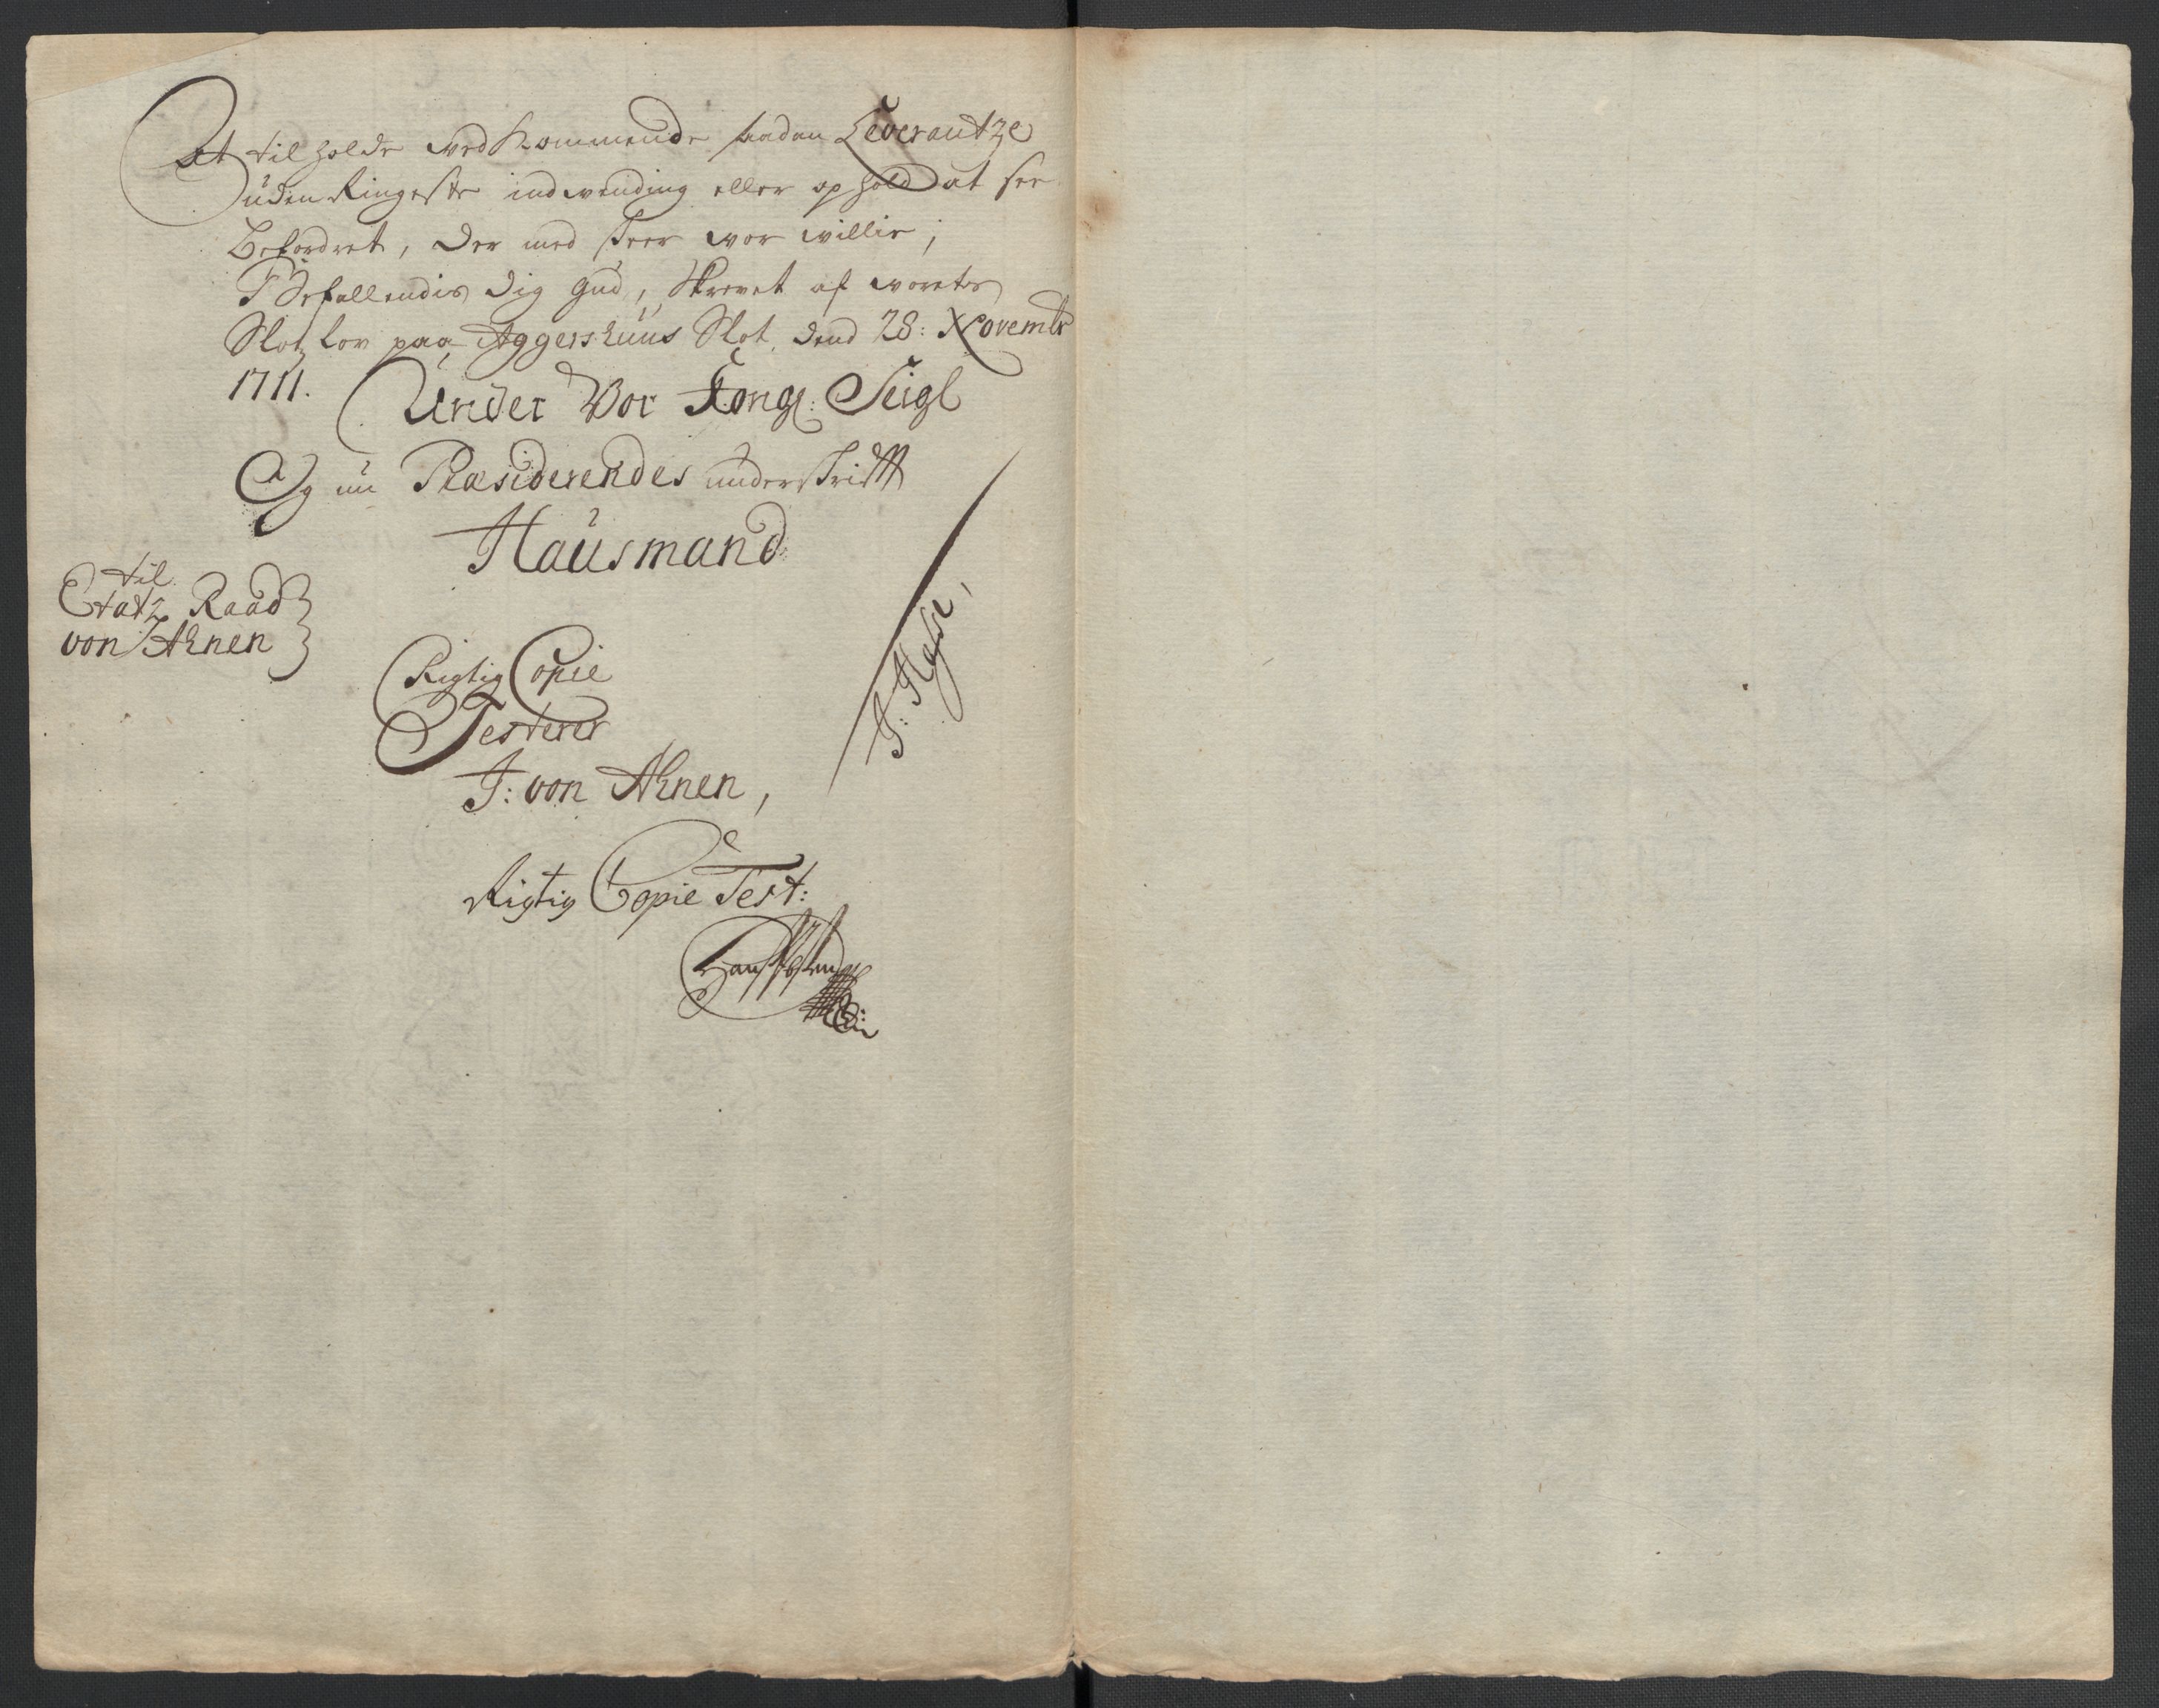 At tilholde vedkommende saadan Leverantze
uden Ringeste indvending eller ophold at see
Befordret, der med skeer vor villie;
Befallendis dig gud, Skrevet af vorets
Slotz lov paa Aggershuus Slot, dend 28: Novembr
1711.
Under Vor Kongl: Seigl
Og nu Præsiderendes underskrifft
Hausmand
til
Etatz Raad
von Ahnen
Rigtig Copie
Testerer
J: von Ahnen,
Rigtig Copie Test: